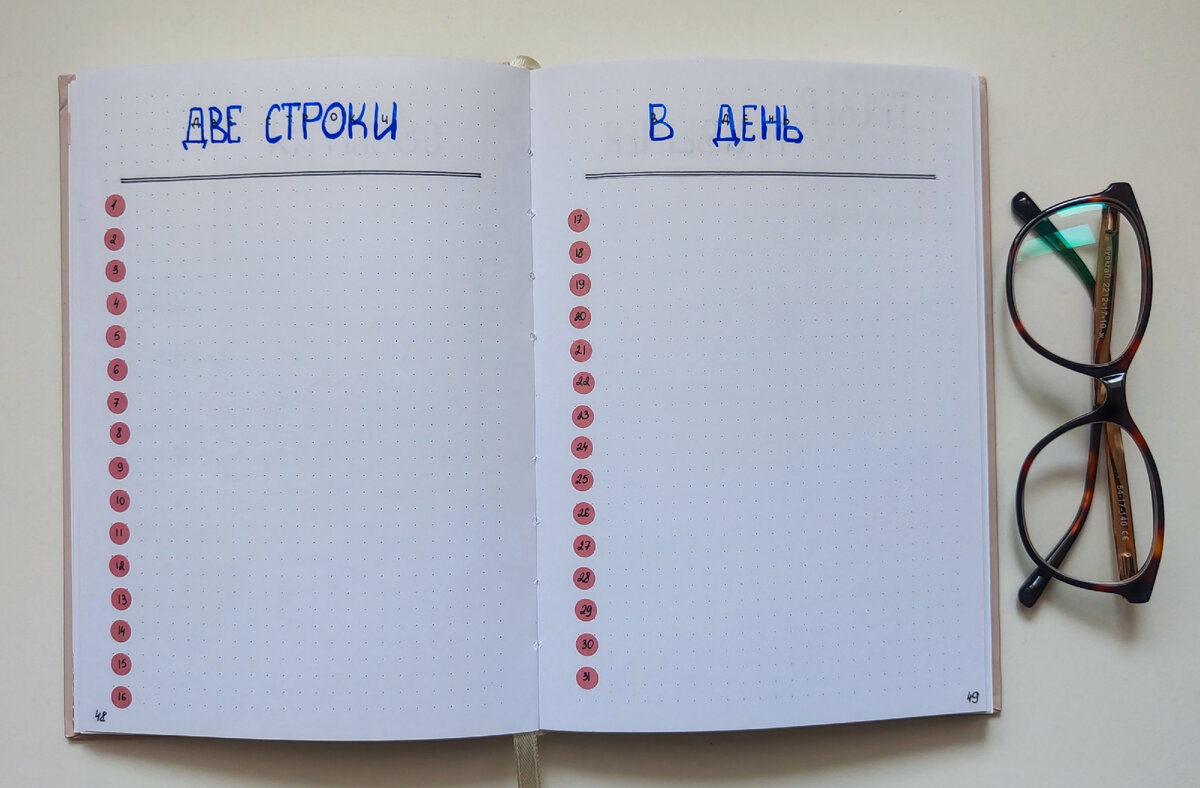 ДВЕ СТРОКИ
1
2
3
4
5
6
7
8
9
10
11
12
13
14
15
16
48
В ДЕНЬ
17
18
19
20
21
22
23
24
25
26
27
28
29
30
31
49